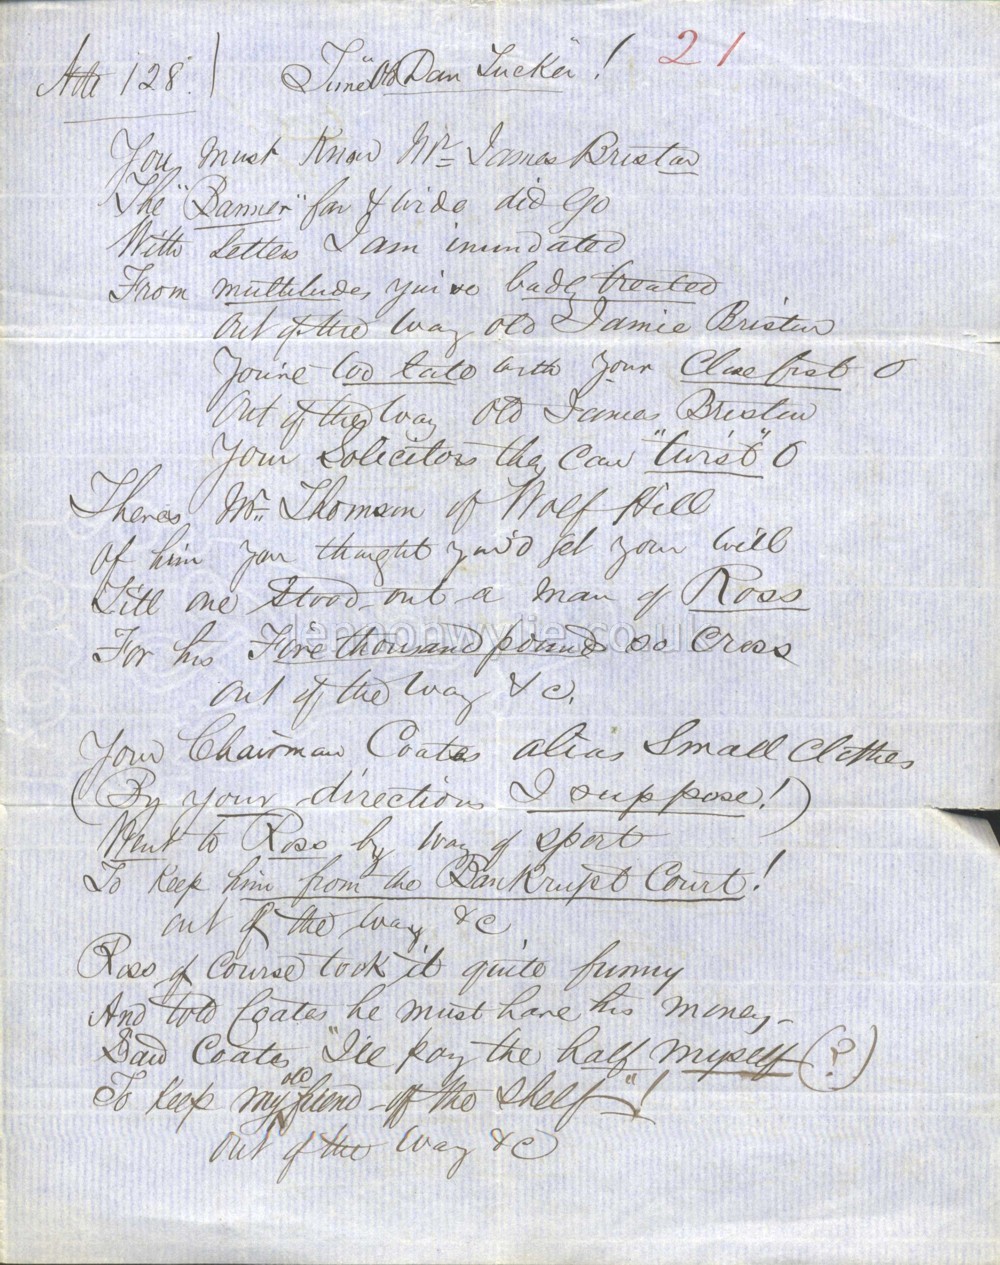 Atte 128.) Tune "Old Dan Tucker"! 21
You must Know Mr James Bristow
The "Banner" far & wide did go
With Letters I am inundated
From multitudes you've badly treated
Out of the way old Jamie Bristow
You're too late with your Close fist O
Out of the way Old James Bristow
Your Solicitors they can "twist" O
Theres Mr Thomson of Wolf Hill
Of him you thought you'd get your will
Till one stood out a man of Ross
For his Five thousand pounds so Cross
Out of the way &c.
Your Chairman Coates alias Small Clothes
(By your directions I suppose!)
Went to Ross by way of sport
To keep him from the Bankrupt Court!
out of the way &c
Ross of Course took it quite funny
And told Coates he must have his money -
Said Coates "I'll pay the half myself (?)
To keep my old friend off the shelf"!
Out of the way &c
lennonwylie.co.uk